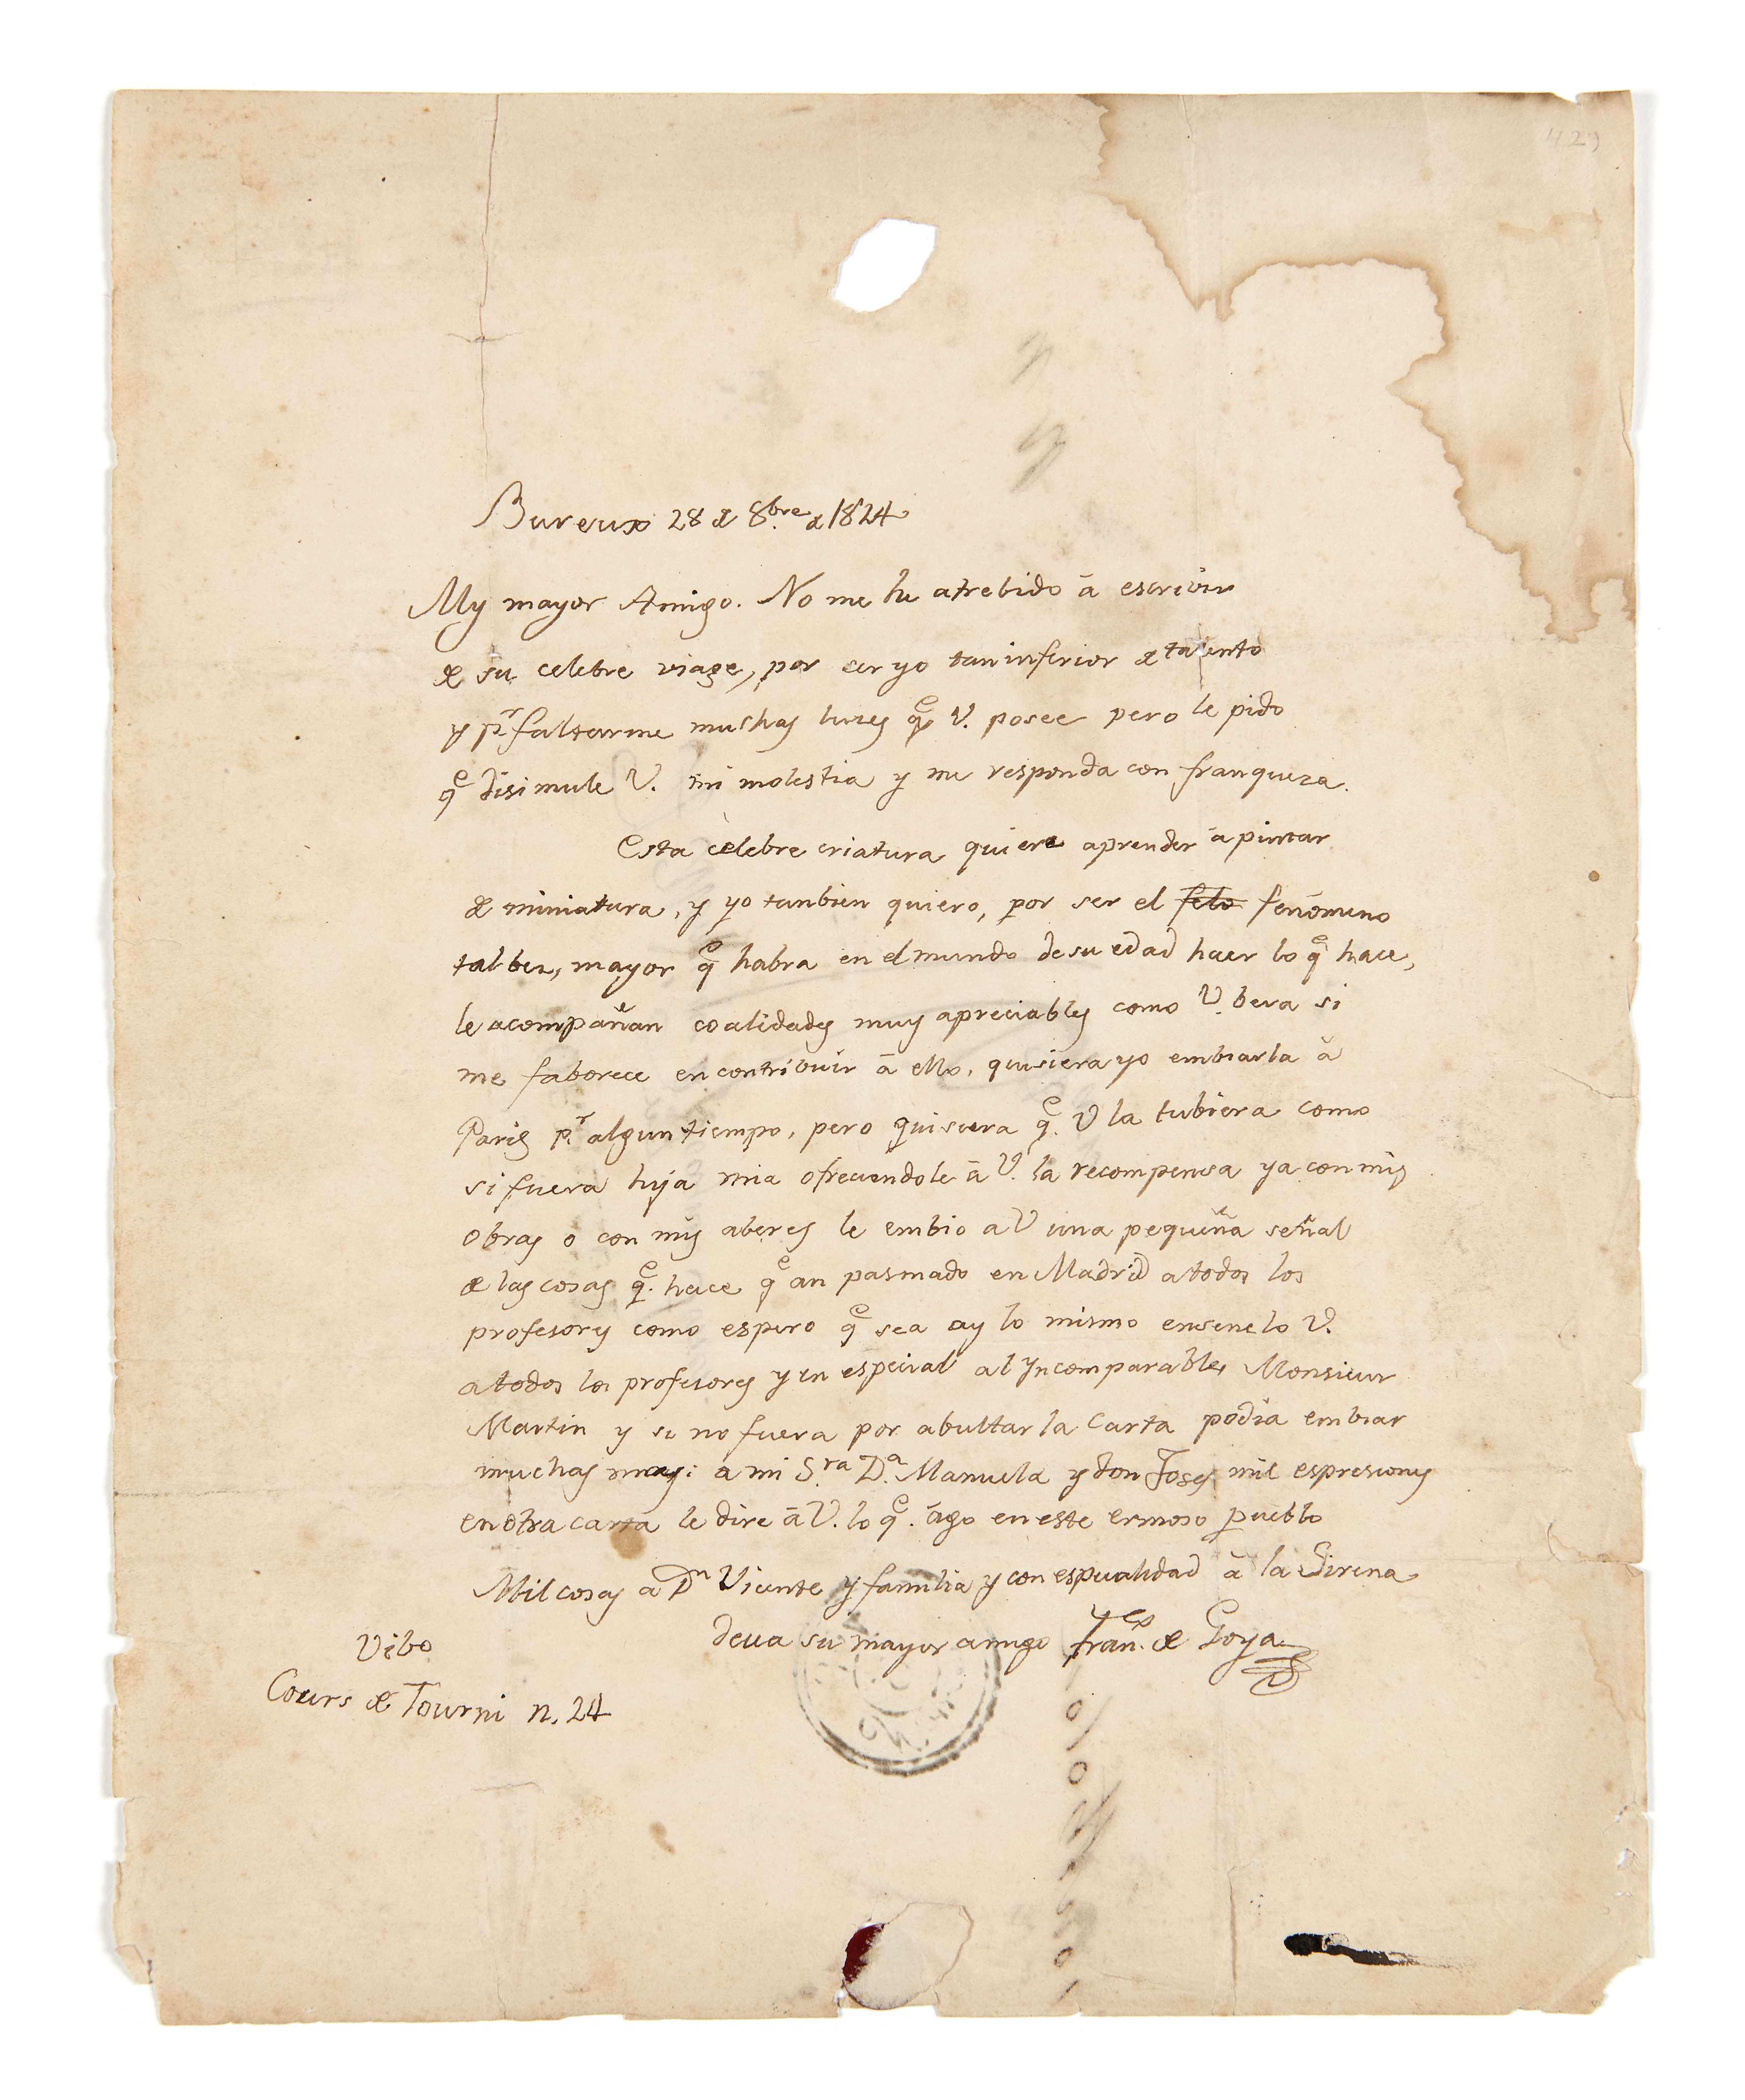 429
Bureux 28 de 8.bre de 1824
My mayor Amigo. No me he atrebido á escrivir
de su celebre viage, por ser yo tan inferior de talento
y p.r faltarme muchas luzes q.e V. posee pero le pido
q.e disimule V. mi molestia y me responda con franqueza.
Esta celebre criatura quiere aprender á pintar
de miniatura, y yo tanbien quiero, por ser el felo fenómeno
talbez, mayor q.e habra en el mundo de su edad hacer lo q.e hace,
le acompañan coalidades muy apreciables como V. bera si
me faborece en contribuir á ello, quisiera yo embiarla á
Paris p.r algun tiempo, pero quisiera q.e V la tubiera como
si fuera hija mia ofreciendole á V. la recompensa ya con mis
obras ó con mis aberes le embio a V una pequeña señal
de las cosas q.e hace q.e an pasmado en Madrid a todos los
profesores como espero q.e sea ay lo mismo ensenelo V.
a todos los profesores y en especial al Yncomparable Monsieur
Martin y si no fuera por abultar la Carta podia embiar
muchas mas: á mi S.ra D.a Manuela y don Josef mil espresiones
en otra carta le dire á V. lo q.e ágo en este ermoso pueblo
Mil cosas a D.n Vicente y familia y con espcialidad á la Sirena
deua su mayor amigo Fran.co de Goya
Vibo
Cours de Tourni n. 24